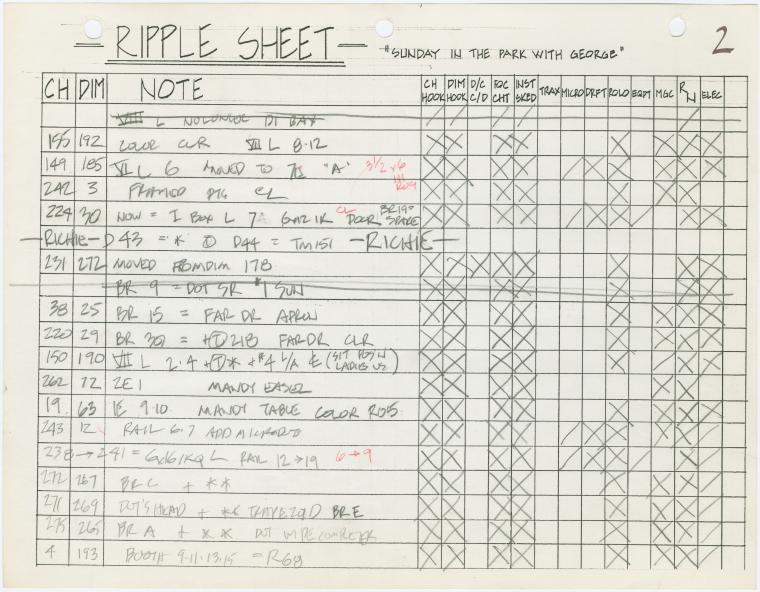 RIPPLE SHEET
"SUNDAY IN THE PARK WITH GEORGE"
2
CH DIM NOTE CH HOOK DIM HOOK D/C C/D FOC CHT INST SKED TRAX MICRO DRFT ROLO EQPT MGC RN ELEC
VIII L NO LONGER
155 192 COLOR CLR VII L 8·12
149 185 VII L 6 MOVED TO "A" 3 1/2 x 6
242 3 FRAMED CL R09
224 30 NOW = I BOX L 7A CL DOOR BR 19= SPARE
RICHIE D43 = * D44 = TM151 RICHIE
231 272 MOVED FROM DIM 178
BR 9 = DOT SR #1 SUN
38 25 BR 15 = FAR DR APRON
220 29 BR 30 = 218 FAR DR CLR
150 190 VII L 2·4 + * + #4 (SIT POS'N LADIES US)
262 72 2E1 MANDY EASEL
19 63 1E 9·10 MANDY TABLE COLOR R05
243 12 RAIL 6·7 ADD MICRO
238 → 241 = L RAIL 12→19 6→9
272 267 BR C + * *
271 269 DOT'S HEAD + ** TRAPEZOID BR E
275 265 BR A + * * DOT
4 193 BOOTH 9·11·13·15 = R68